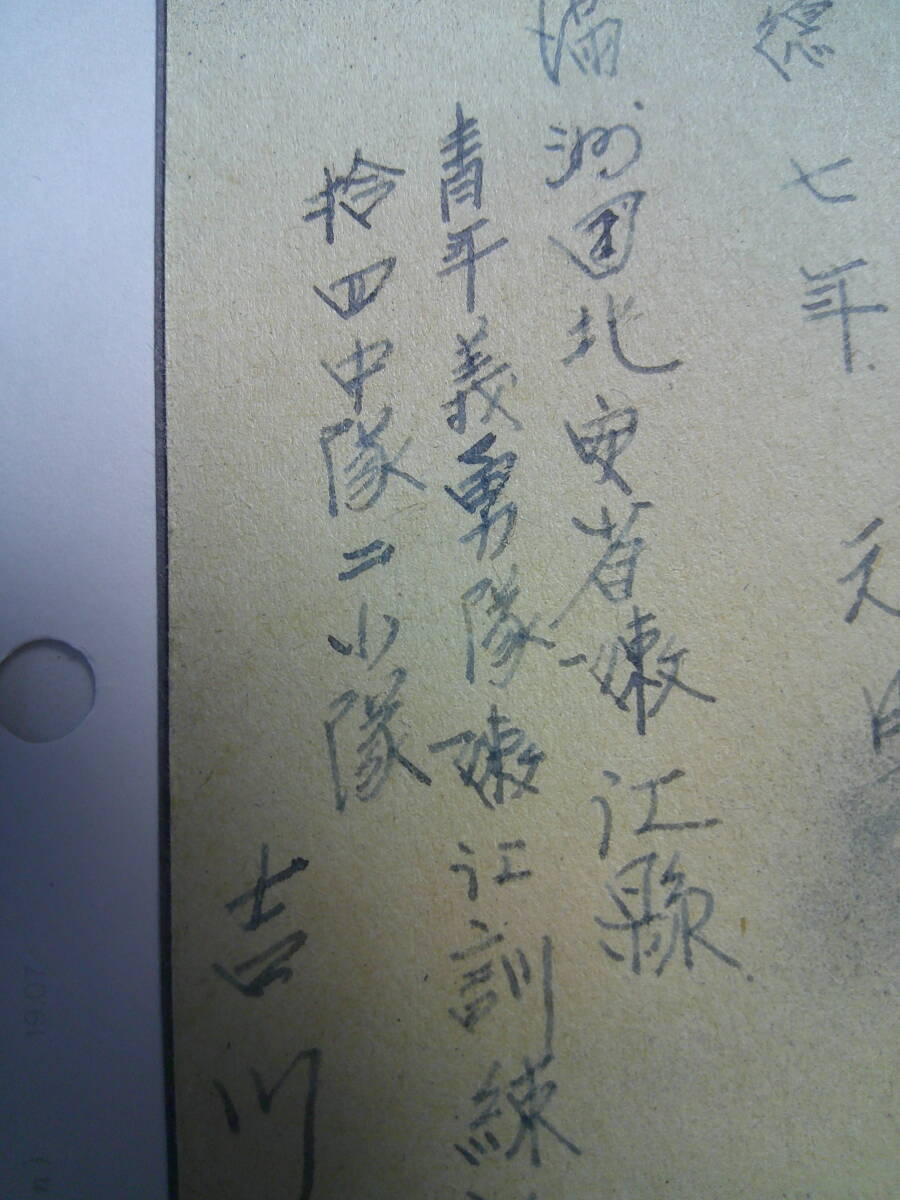 徳七年 元
満洲国北安省嫩江縣
青年義勇隊嫩江訓練
拾四中隊二小隊
吉川